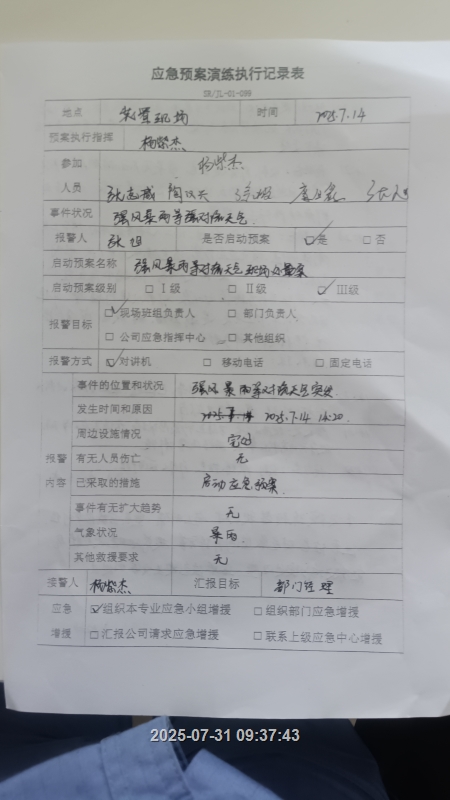 应急预案演练执行记录表
SR/JL-01-099
地点 现场 时间 2025.7.14
预案执行指挥 杨紫杰
参加 杨紫杰
人员 张志威
事件状况 强风暴雨等强对流天气
报警人 张坦 是否启动预案 ☑是 □否
启动预案名称 强风暴雨等对流天气现场处置案
启动预案级别 □Ⅰ级 □Ⅱ级 ☑Ⅲ级
报警目标 ☑现场班组负责人 □部门负责人
□公司应急指挥中心 □其他组织
报警方式 ☑对讲机 □移动电话 □固定电话
事件的位置和状况 强风暴雨等对流天气突发
发生时间和原因 2025.7.14 14:20
周边设施情况 完好
报警 有无人员伤亡 无
内容 已采取的措施 启动应急预案
事件有无扩大趋势 无
气象状况 暴雨
其他救援要求 无
接警人 杨紫杰 汇报目标 部门经理
应急 ☑组织本专业应急小组增援 □组织部门应急增援
增援 □汇报公司请求应急增援 □联系上级应急中心增援
2025-07-31 09:37:43